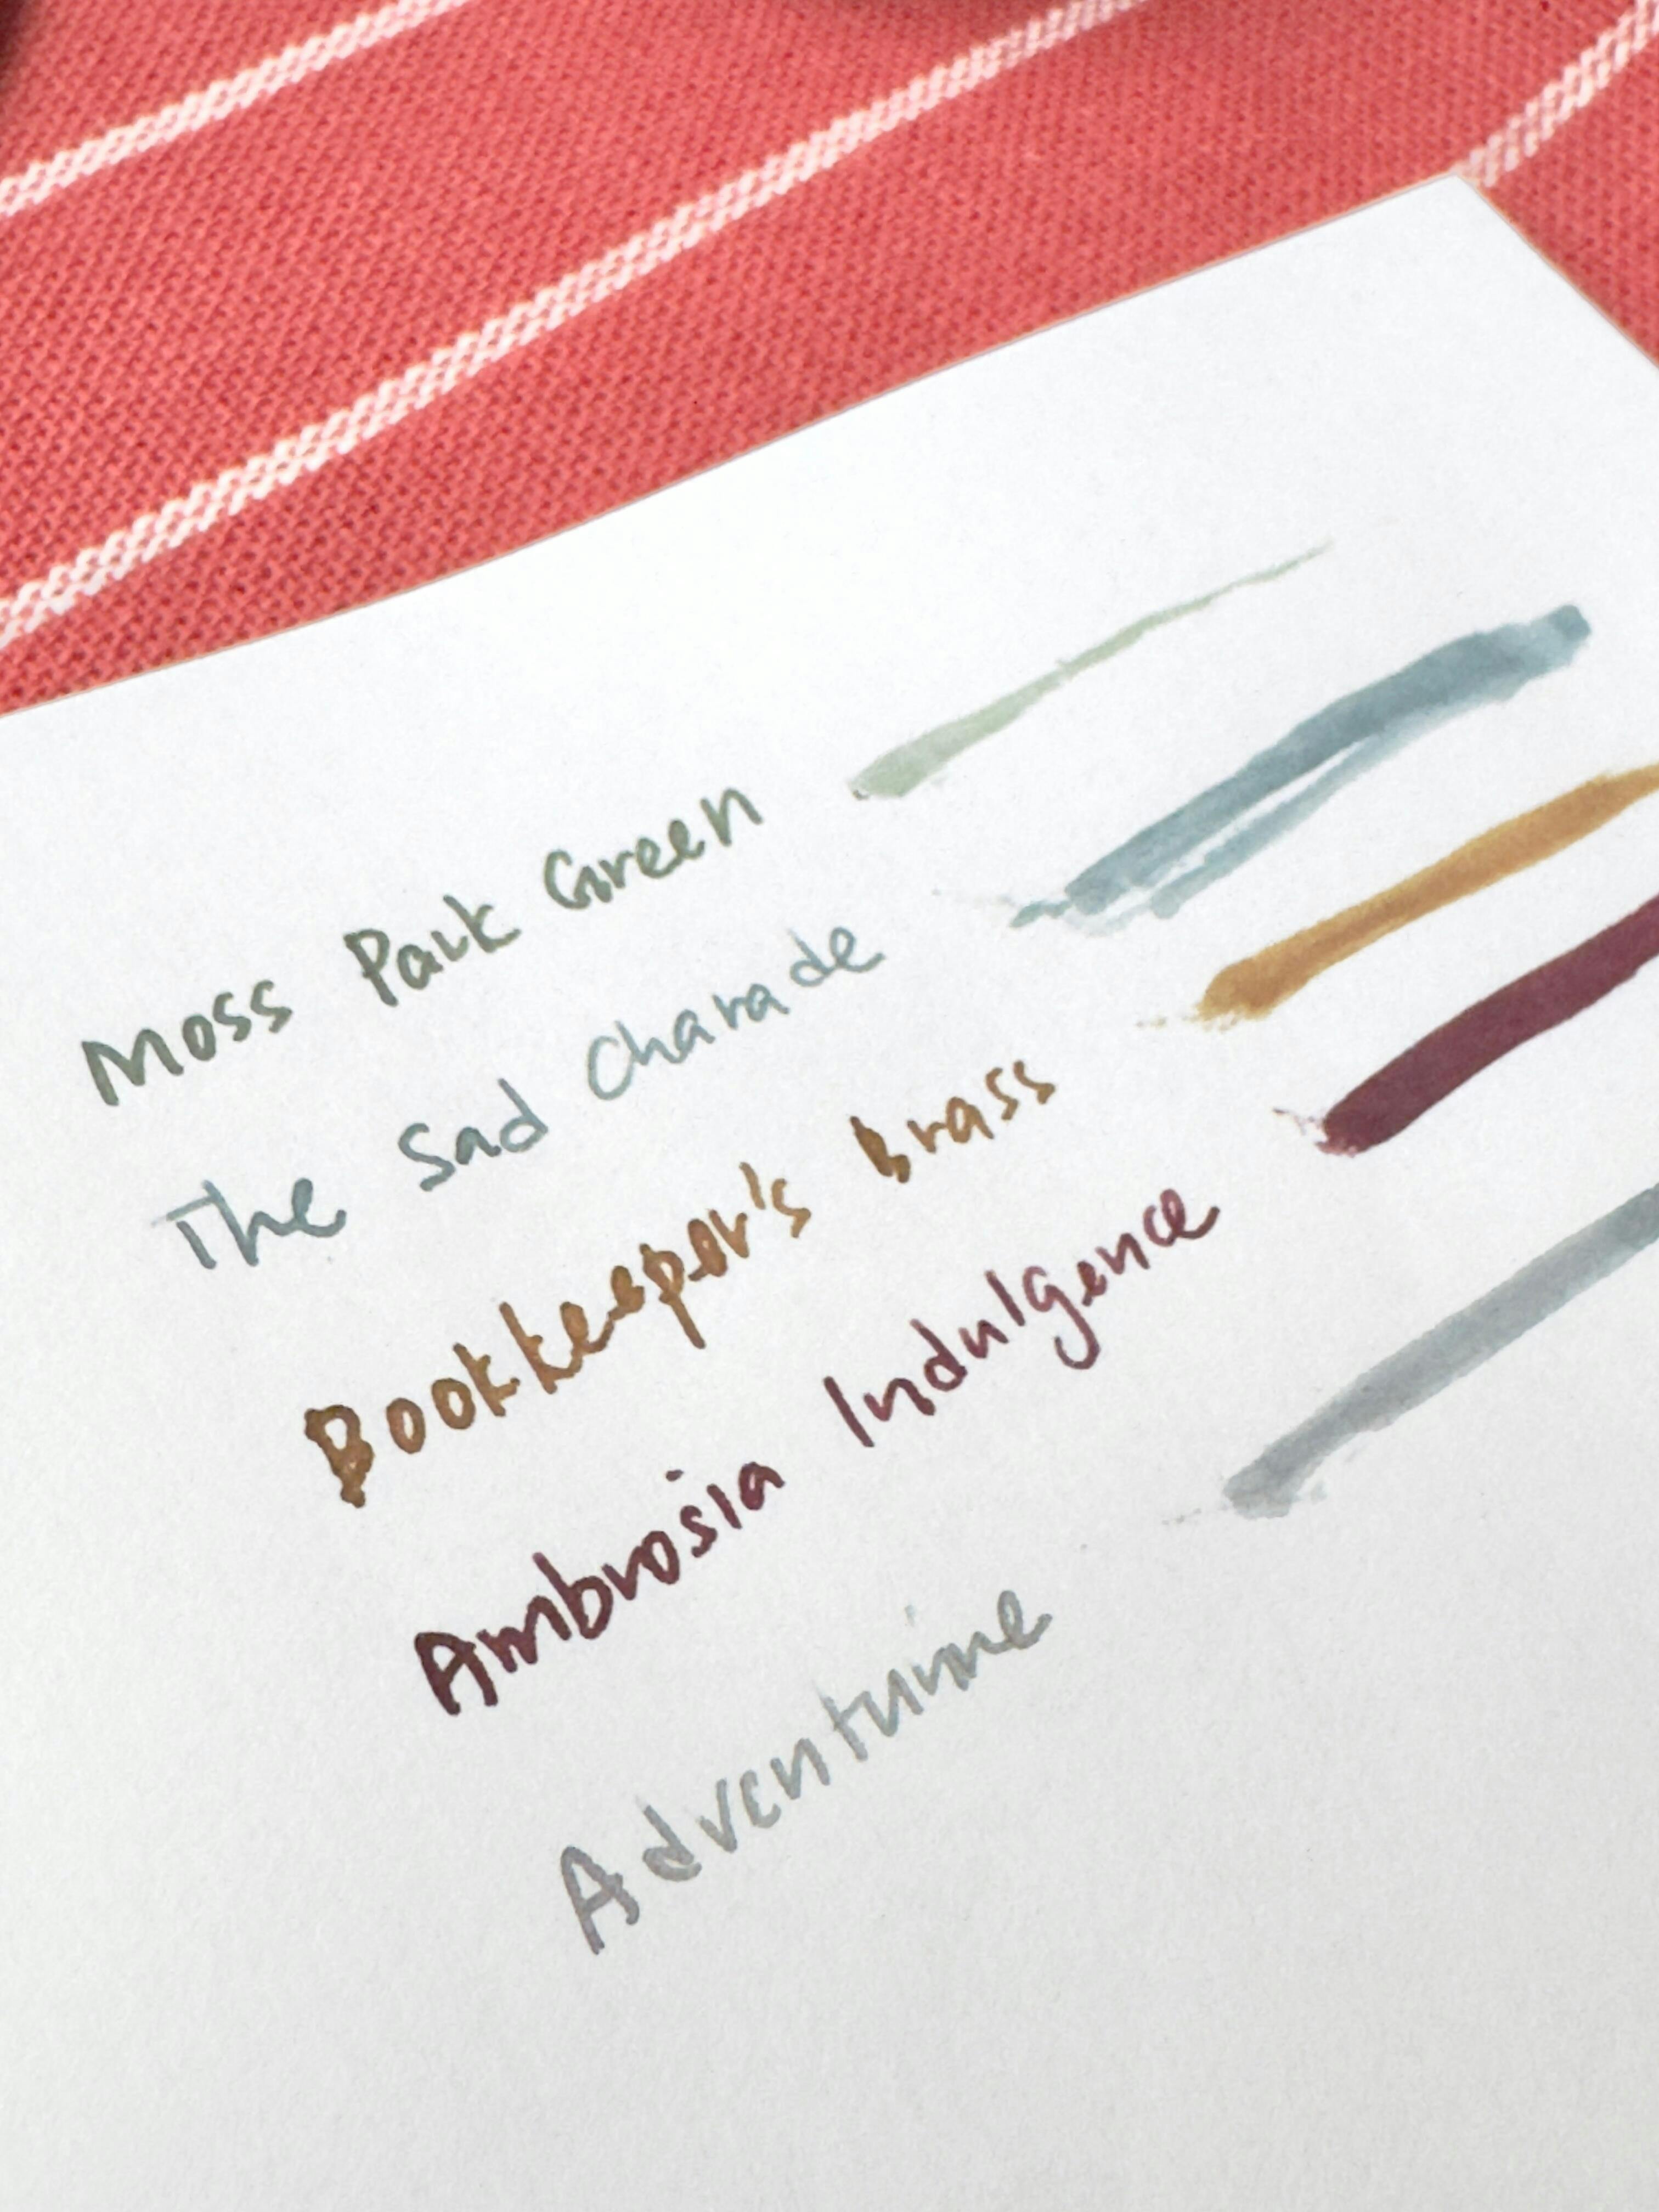 Moss Park Green
The Sad Charade
Bookkeeper's Brass
Ambrosia Indulgence
Adventurine